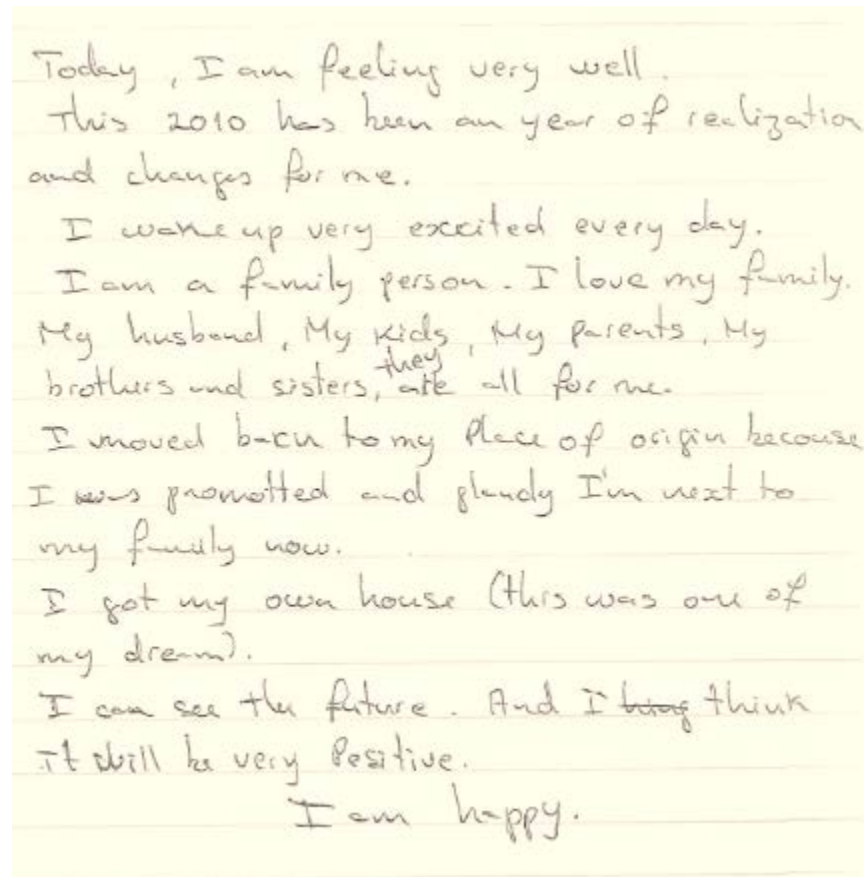 Today, I am feeling very well.
This 2010 has been an year of realization
and changes for me.
I wake up very excited every day.
I am a family person. I love my family.
My husband, My kids, My parents, My
brothers and sisters, they are all for me.
I moved back to my place of origin because
I was promotted and glandy I'm next to
my family now.
I got my own house (this was one of
my dream).
I can see the future. And I think
it will be very Positive.
I am happy.